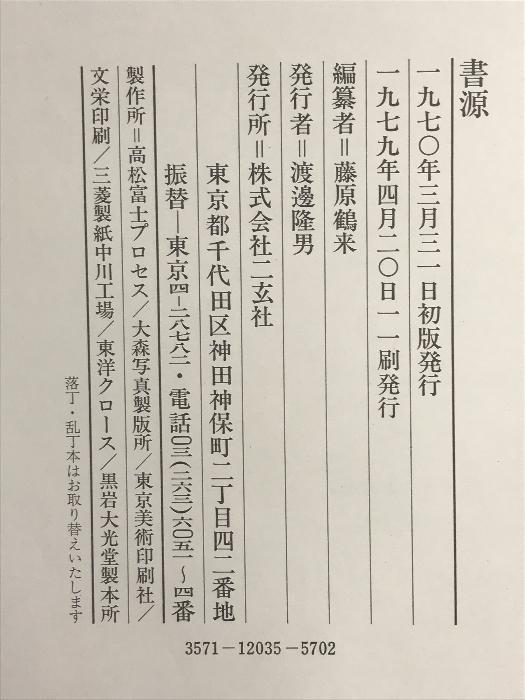 書源
一九七〇年三月三一日初版発行
一九七九年四月二〇日一一刷発行
編纂者＝藤原鶴来
発行者＝渡邊隆男
発行所＝株式会社二玄社
東京都千代田区神田神保町二丁目四二番地
振替―東京四-二八七八二・電話〇三(二六三)六〇五一～四番
製作所＝高松富士プロセス/大森写真製版所/東京美術印刷社/
文栄印刷/三菱製紙中川工場/東洋クロース/黒岩大光堂製本所
落丁・乱丁本はお取り替えいたします
3571-12035-5702